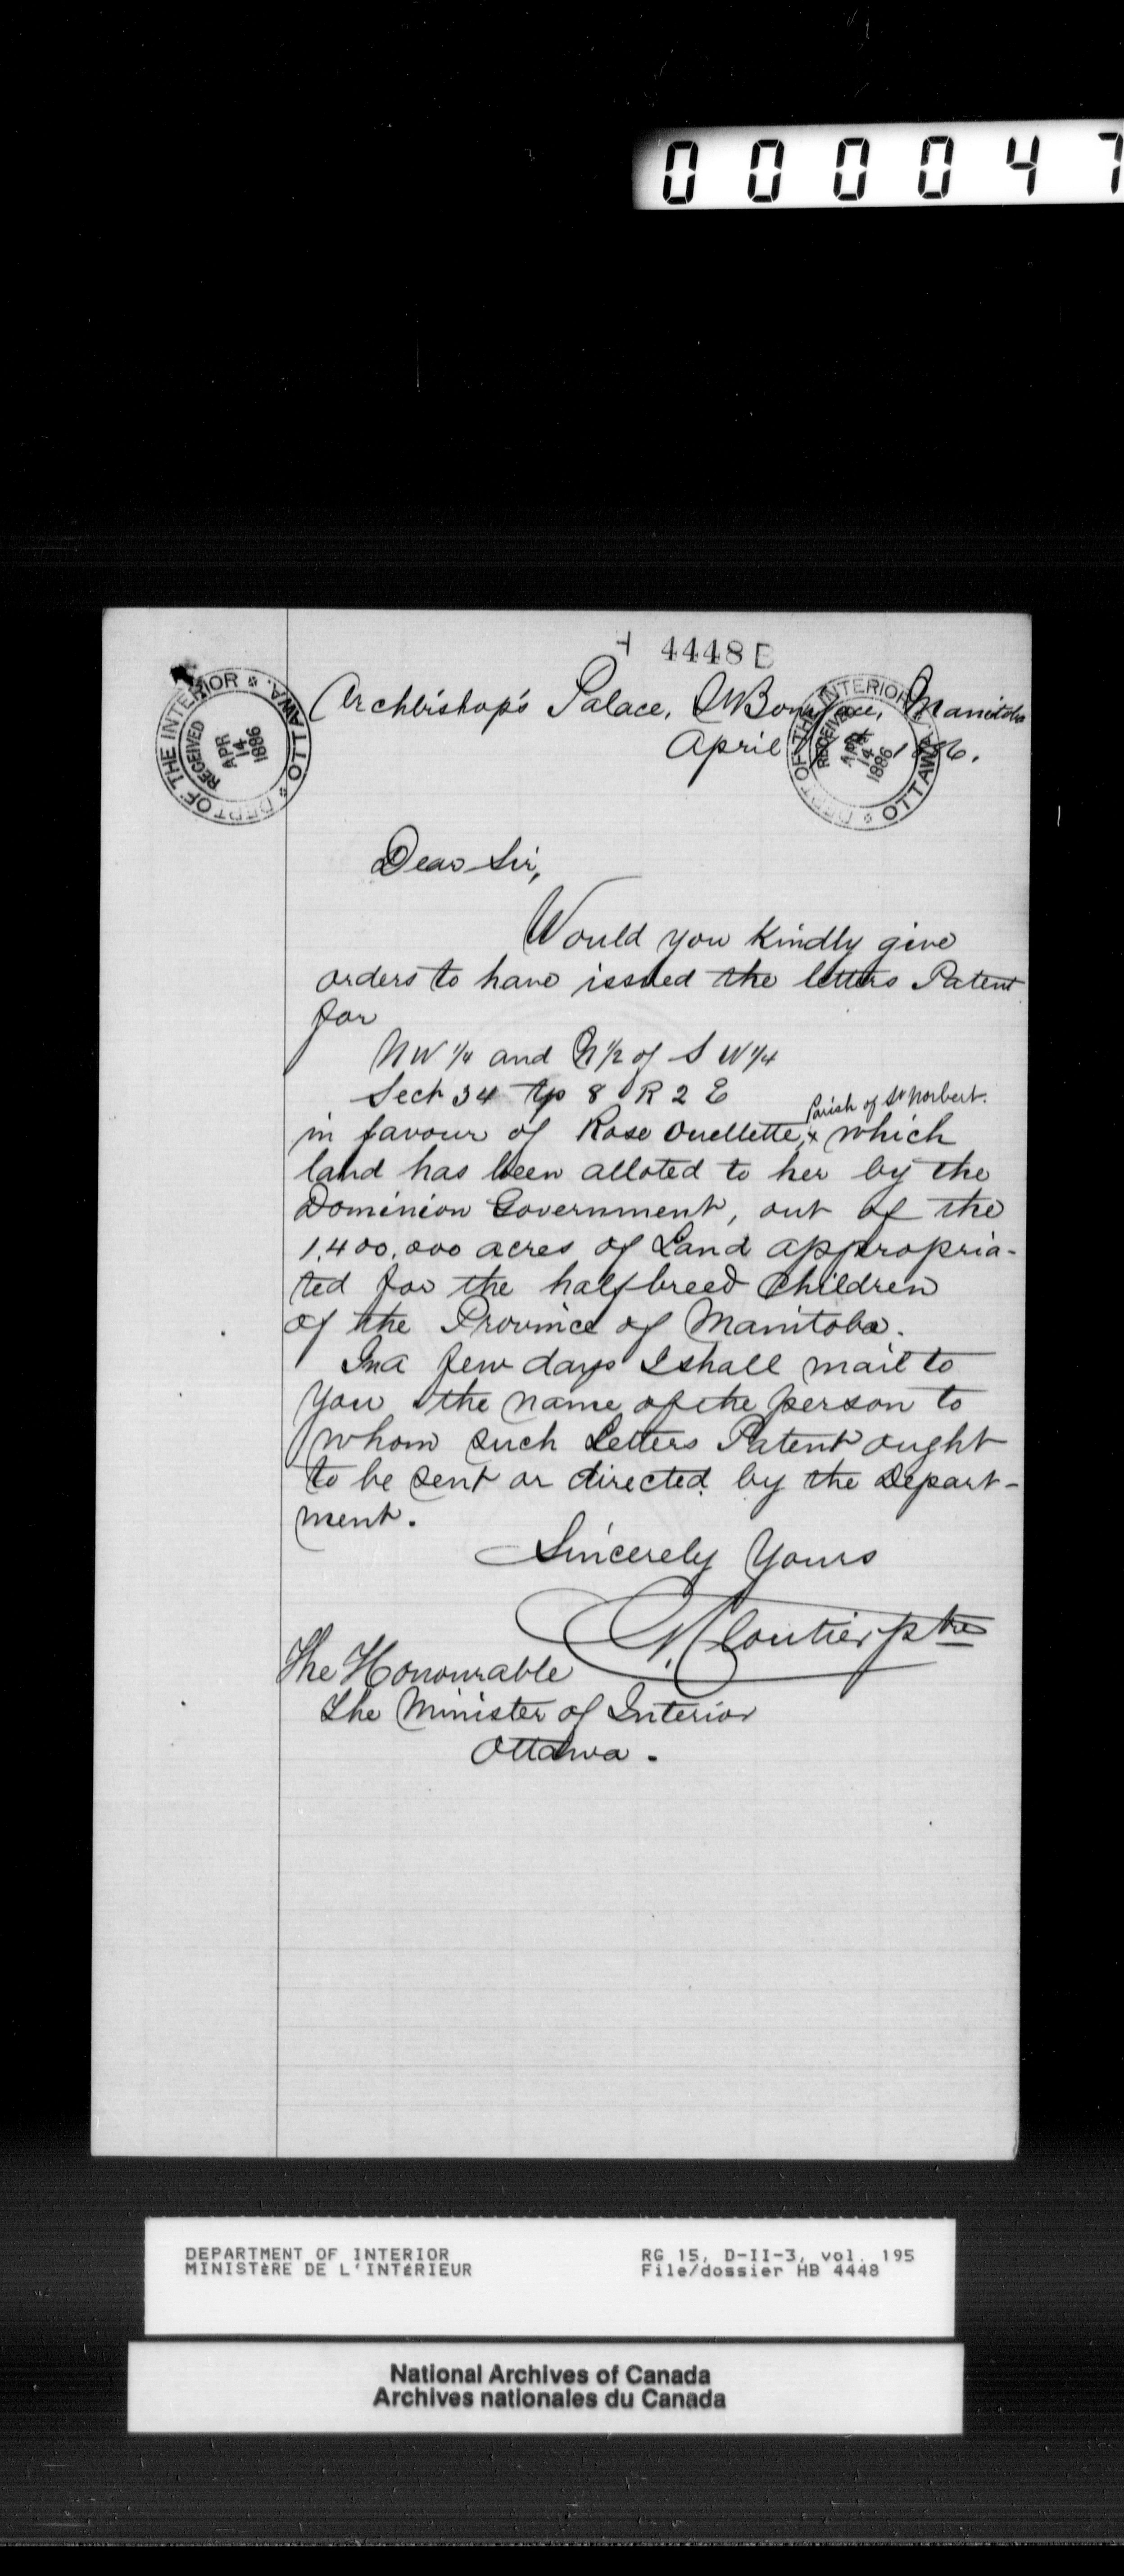 000047
H 4448 B
Archbishop's Palace, St Boniface, Manitoba
April 1886.
DEPT OF THE INTERIOR OTTAWA.
RECEIVED
APR
14
1886
DEPT OF THE INTERIOR OTTAWA
RECEIVED
APR
14
1886
Dear Sir,
Would you kindly give
orders to have issued the letters Patent
for
NW 1/4 and N 1/2 of S W 1/4
Sect 34 Tp 8 R 2 E
Parish of St Norbert.
in favour of Rose Ouellette, x which
land has been alloted to her by the
Dominion Government, out of the
1,400,000 acres of Land appropria-
ted for the halfbreed Children
of the Province of Manitoba.
In a few days I shall mail to
you the name of the person to
whom such Letters Patent ought
to be sent or directed by the Depart-
ment.
Sincerely Yours
G. Cloutier ptre
The Honourable
The Minister of Interior
Ottawa.
DEPARTMENT OF INTERIOR
MINISTÈRE DE L'INTÉRIEUR
RG 15, D-II-3, vol. 195
File/dossier HB 4448
National Archives of Canada
Archives nationales du Canada